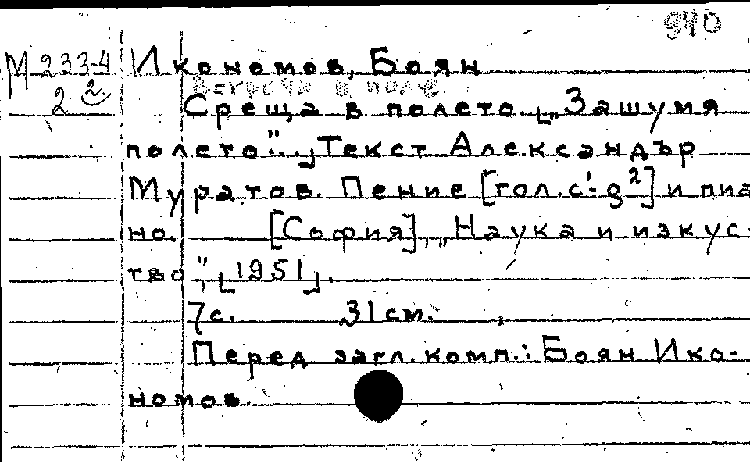 940
М 233-4 Икономов, Боян
2 2. Встреча в поле
Среща в полето. „Зашумя
полето". Текст Александър
Муратов. Пение [гол. c¹-g²] и пиа-
но. [София], „Наука и изкус-
тво", [1951].
7 с. 31 см.
Перед загл. комп.: Боян Ико-
номов.